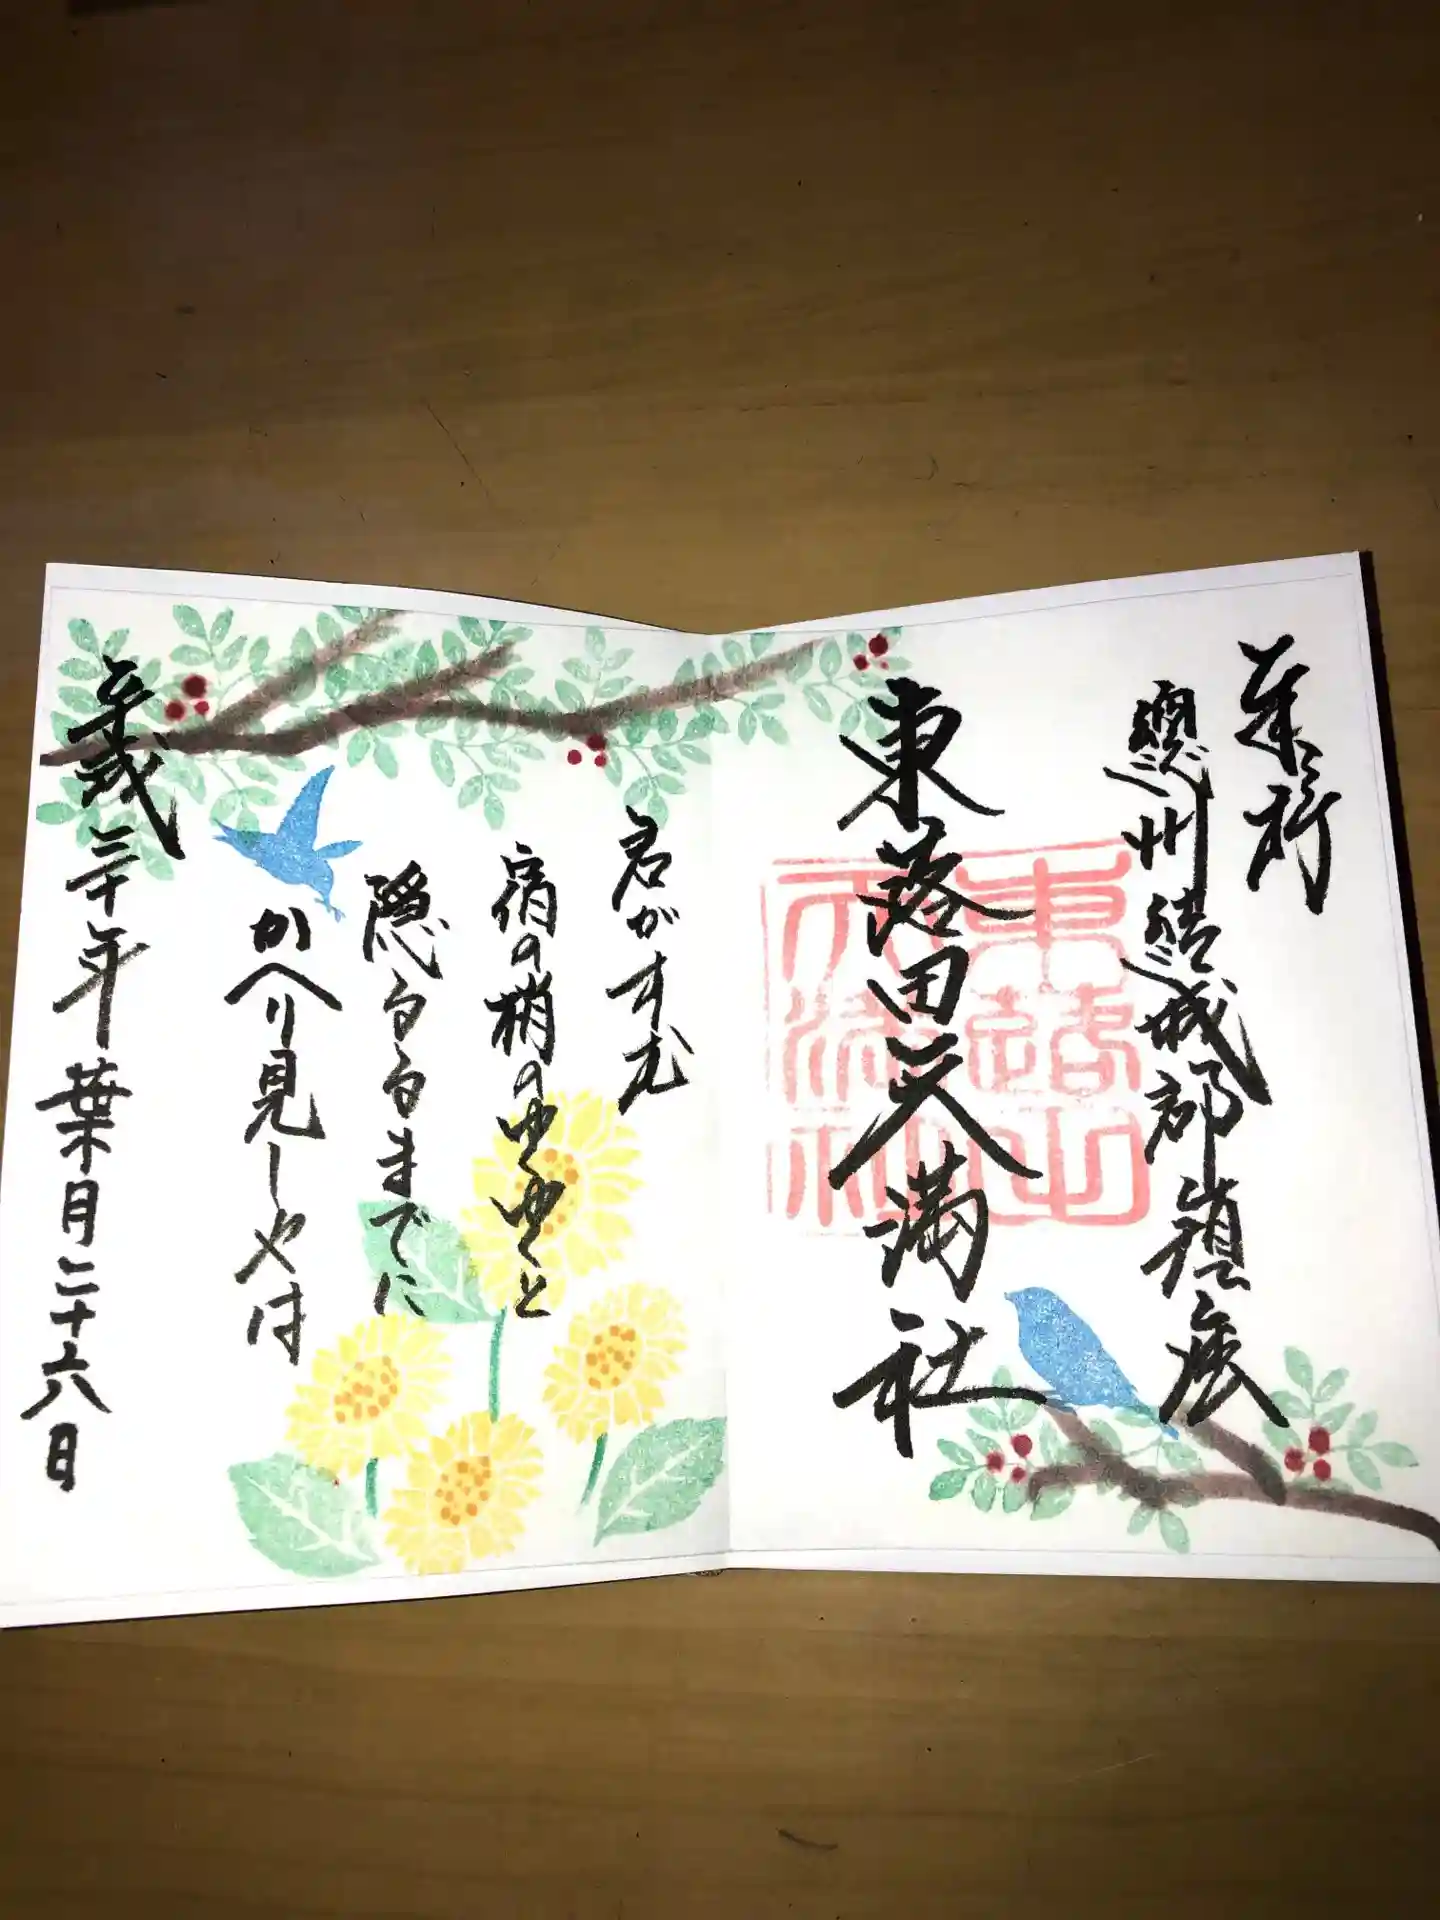 總州結城郡鎮座
東蕗田天満社
君がすむ
宿の梢のゆくゆくと
隠るるまでに
かへり見しやは
平成三十年葉月二十六日